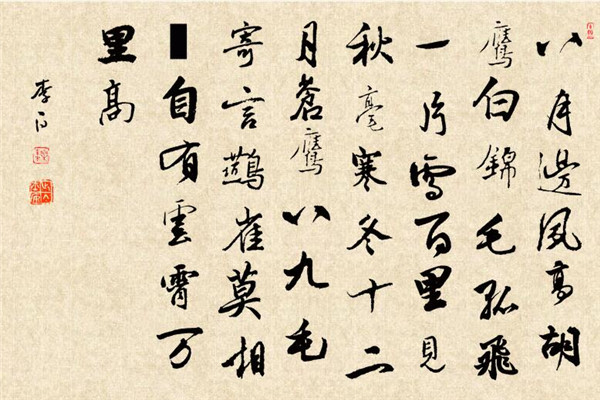 八月邊風高胡
鷹白錦毛孤飛
一片雪百里見
秋毫寒冬十二
月蒼鷹八九毛
寄言鷰雀莫相
自有雲霄万
里高
李白